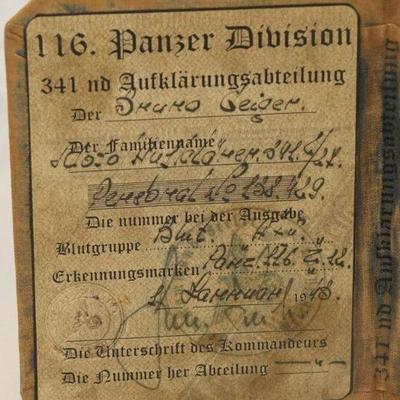 116. Panzer Division
341 nd Aufklärungsabteilung
Der Bruno Geiger.
Der Familienname
Personal No 138.429.
Die nummer bei der Ausgabe
Blutgruppe Blut.
Erkennungsmarken
1948.
Die Unterschrift des Kommandeurs
Die Nummer her Abceilung
341 nd Aufklärungsabteilung